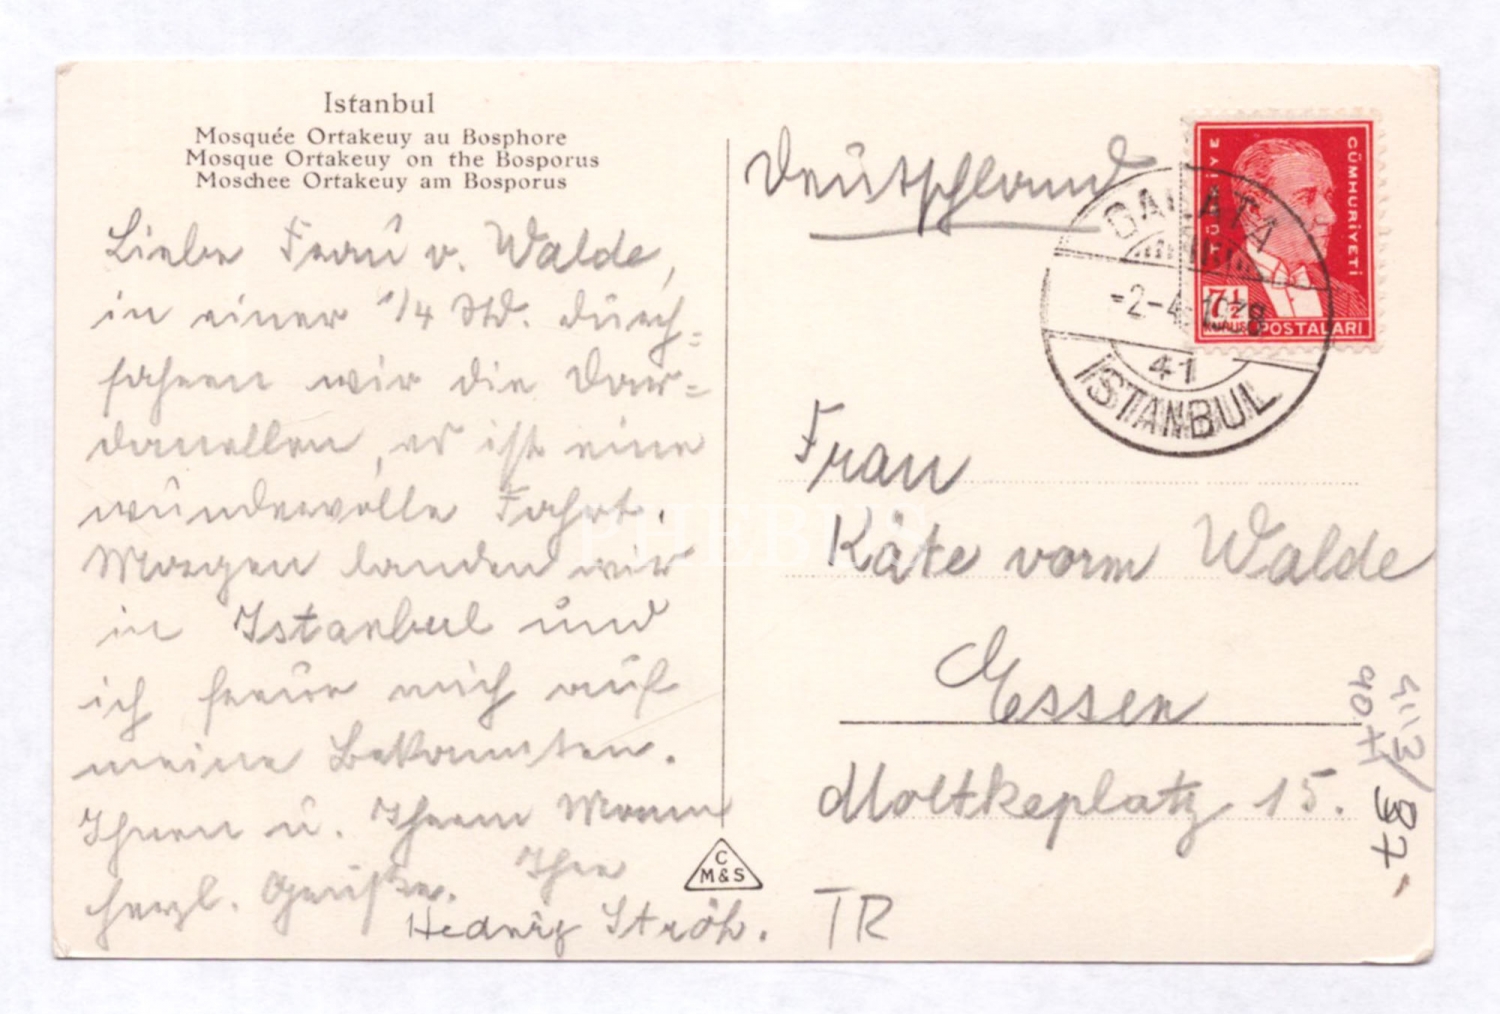 Istanbul
Mosquée Ortakeuy au Bosphore
Mosque Ortakeuy on the Bosporus
Moschee Ortakeuy am Bosporus
Liebe Frau v. Walde,
in einer 1/4 Std. durch=
fahren wir die Dar=
danellen, es ist eine
wundervolle Fahrt.
Morgen landen wir
in Istanbul und
ich freue mich auf
meine Bekannten.
Ihnen u. Ihrem Mann
herzl. Grüße. Ihre
Hedwig Ströh.
C
M&S
Deutschland
TÜRKİYE
CÜMHURİYETİ
7½
KURUŞ POSTALARI
GALATA
-2-4-1938
41
ISTANBUL
Frau
Käte vorm Walde
Essen
Moltkeplatz 15.
TR
PHEBUS